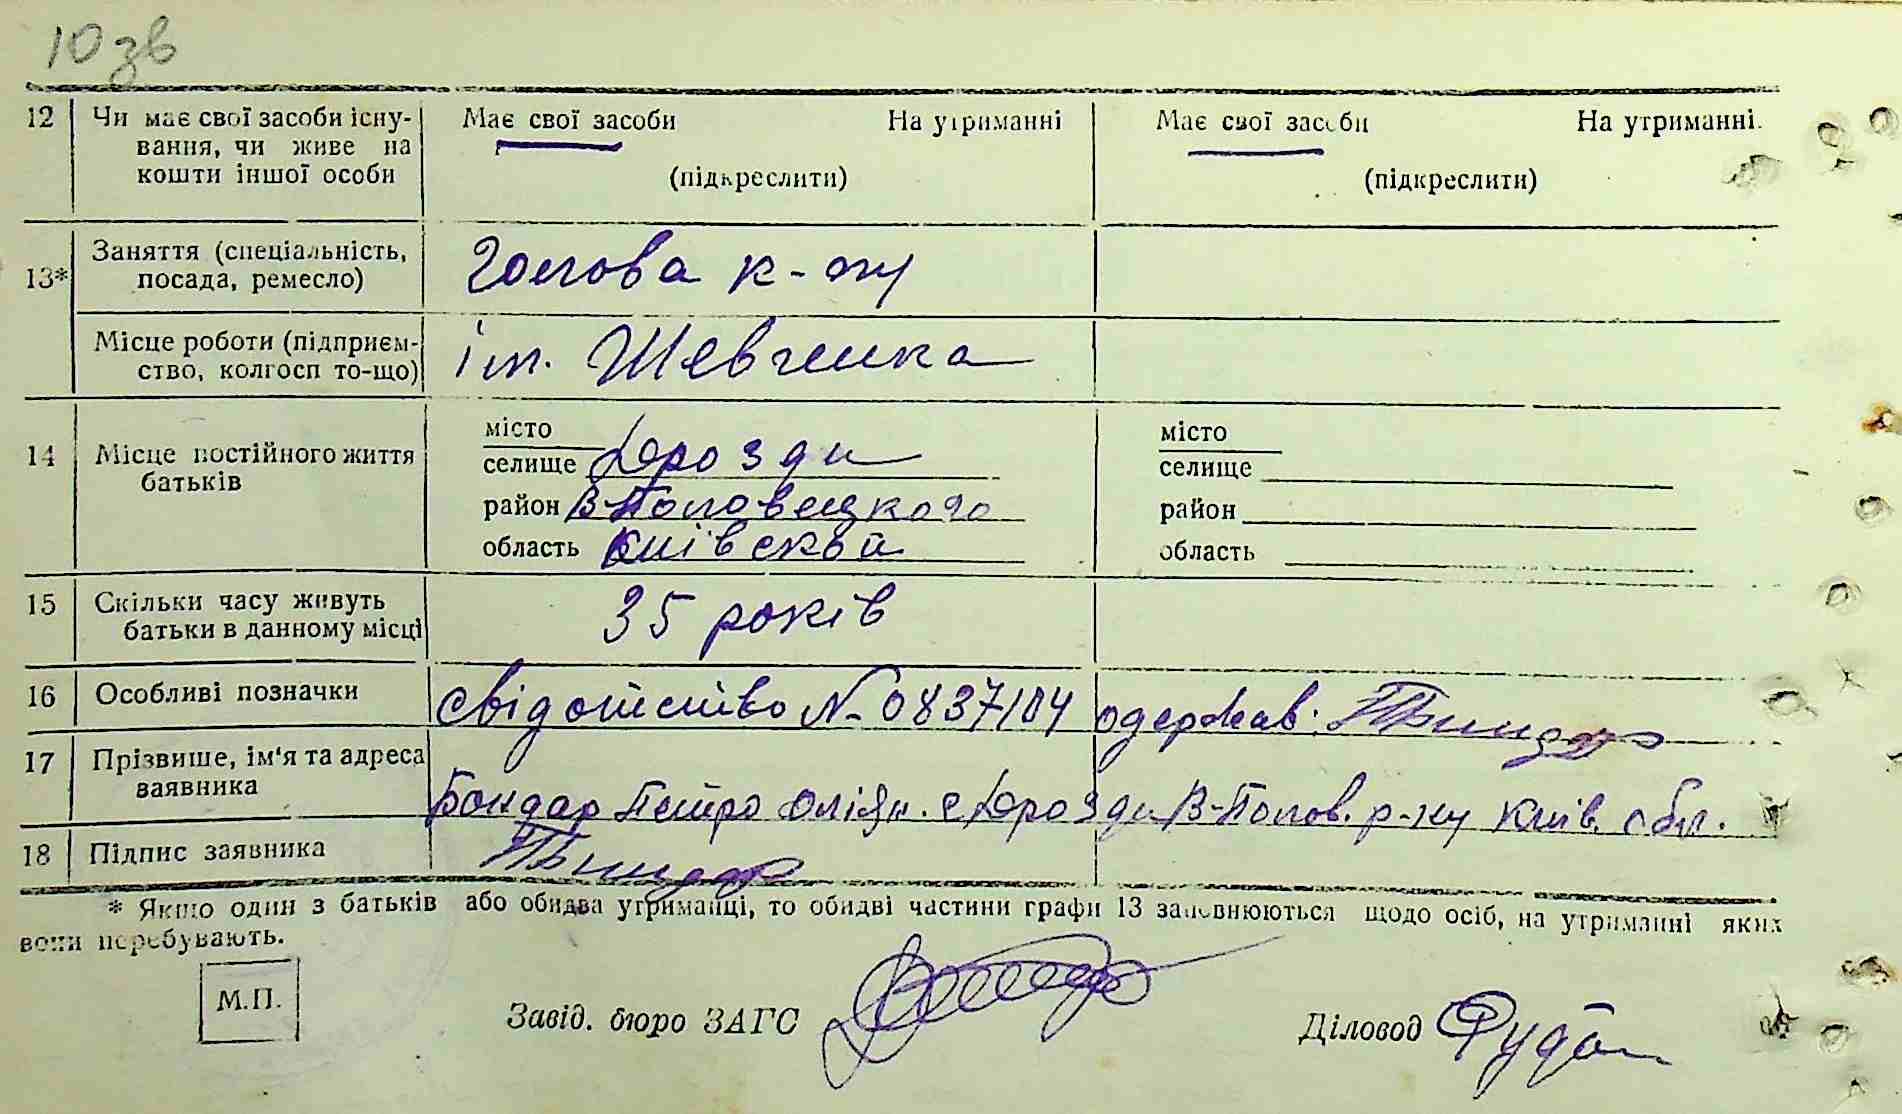 10 зв
12 Чи має свої засоби існу- Має свої засоби На утриманні Має свої засоби На утриманні.
вання, чи живе на
кошти іншої особи (підкреслити) (підкреслити)
Заняття (спеціальність, Голова к-пу
13* посада, ремесло)
Місце роботи (підприєм- ім. Шевченка
ство, колгосп то-що)
місто місто
14 Місце постійного життя селище Дрозди селище
батьків район В-Половецкого район
область Київской область
15 Скільки часу живуть 35 років
батьки в данному місці
16 Особливі позначки свідотство № 0837104 одержав:
17 Прізвише, ім'я та адреса
заявника Бондар Петро с Дрозди В-Полов. р-ну Київ. обл.
18 Підпис заявника
* Якщо один з батьків або обидва утриманці, то обидві частини графи 13 заповнюються щодо осіб, на утриманні яких
вони перебувають.
М.П.
Завід. бюро ЗАГС Діловод